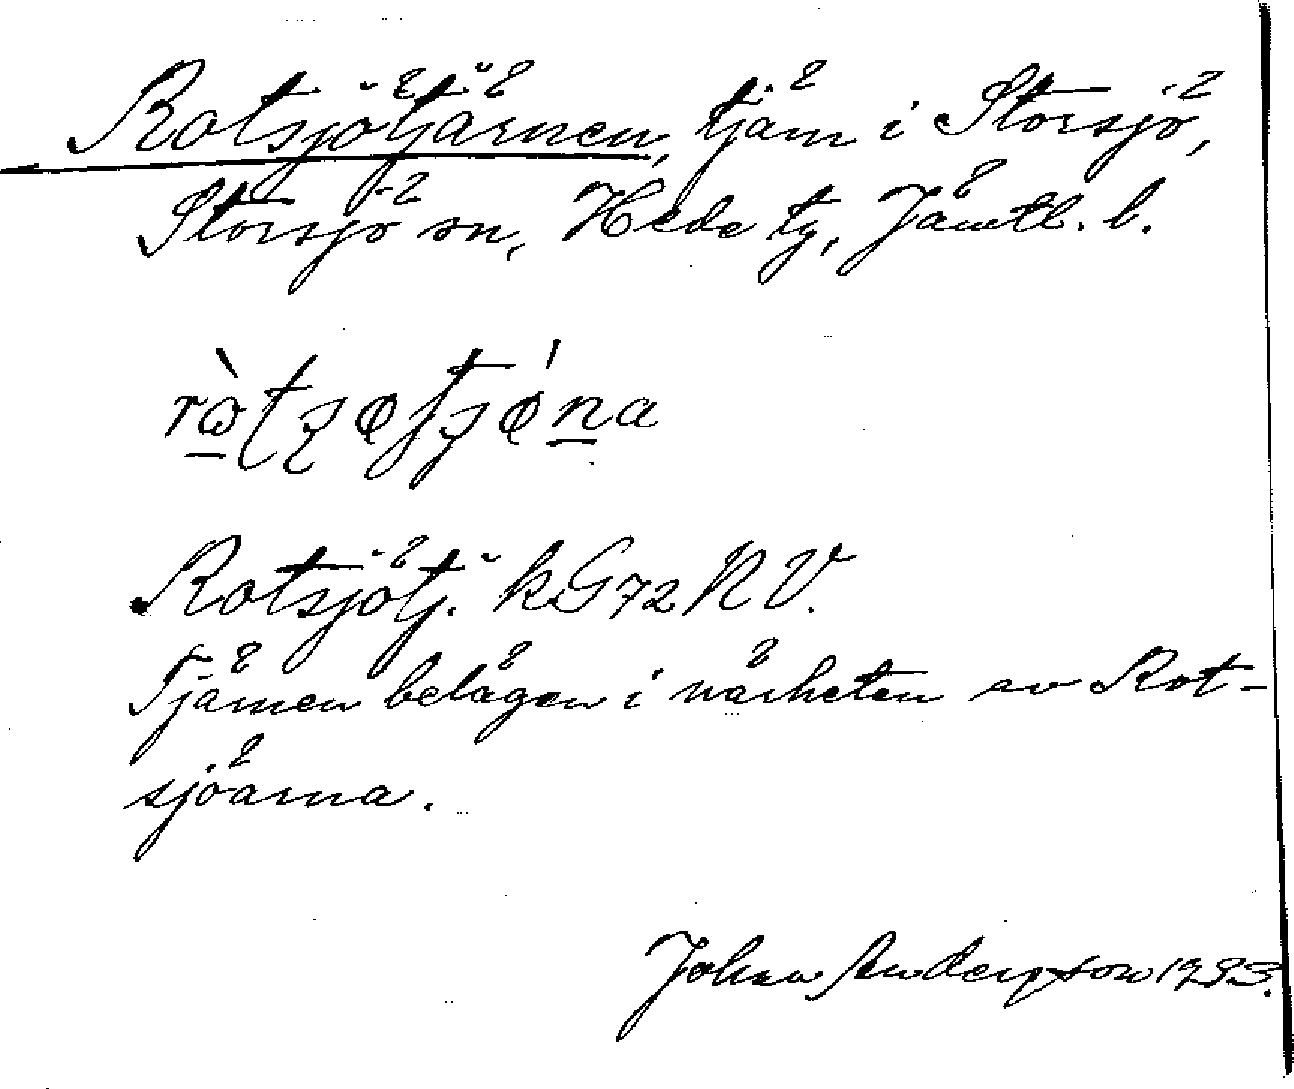 Rotsjötjärnen, tjärn i Storsjö,
Storsjö sn, Hede tg, Jämtl. l.
Rotsjötj. kG72 NV.
Tjärnen belägen i närheten av Rot-
sjöarna.
Johan Andersson 1933.